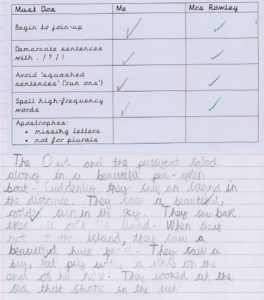 Must Dos Me Mrs Rowley
Begin to join-up
Demarcate sentences
with . ! ? !
Avoid 'squashed
sentences' ('run ons')
Spell high-frequency
words
Apostrophes:
• missing letters
• not for plurals
The Owl and the pussycat sailed
along in a beautiful pea-green
boat. Suddenly they saw an island in
the distance. They saw a beautiful,
sun in the sky. They
When they
got the island, they saw a
beautiful huge They saw a
big, fat pig with a ring on the
end of his nose. They looked at the
sea that shone in the sun.